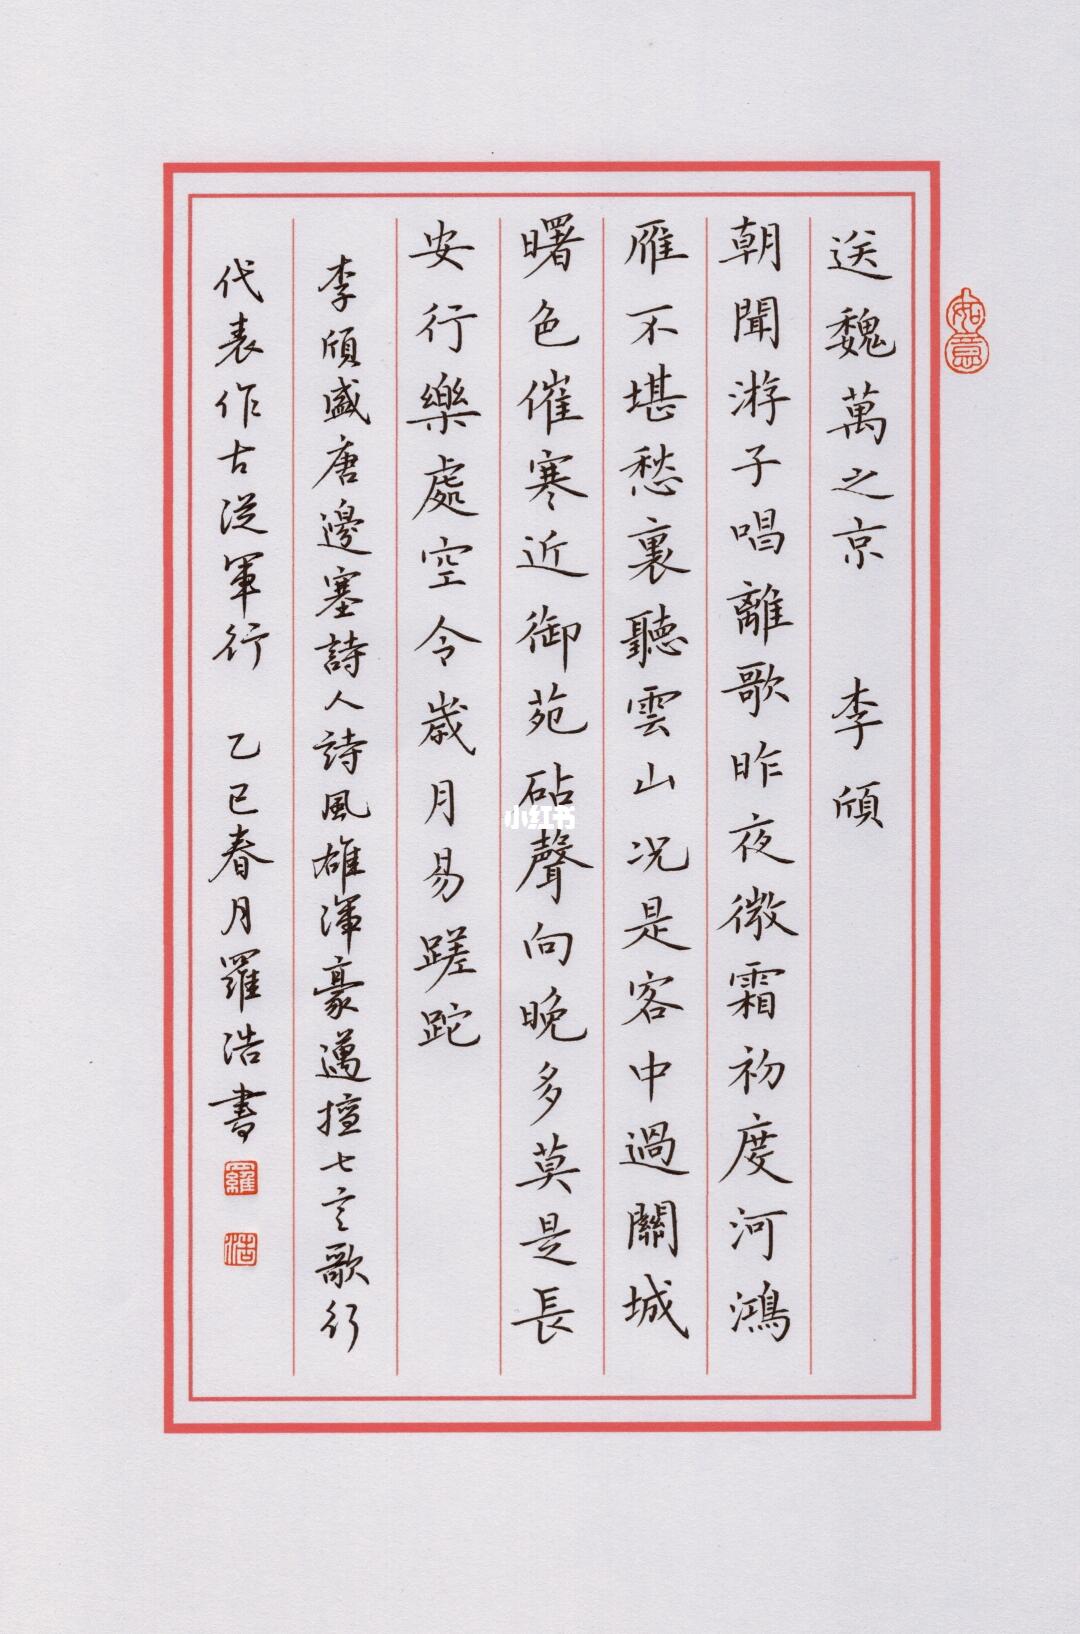 送魏萬之京 李頎
朝聞游子唱離歌昨夜微霜初度河鴻
雁不堪愁裏聽雲山況是客中過關城
曙色催寒近御苑砧聲向晚多莫是長
安行樂處空令歲月易蹉跎
李頎盛唐邊塞詩人詩風雄渾豪邁擅七言歌行
代表作古從軍行 乙巳春月羅浩書
羅
浩
如意
小红书